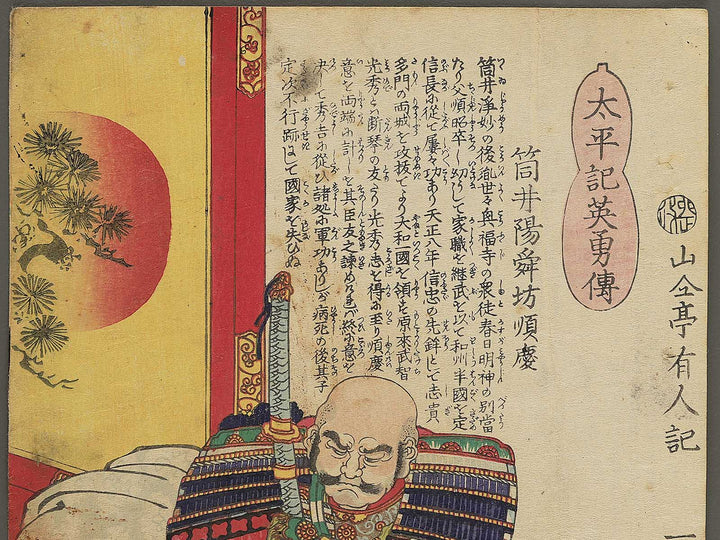 太平記英勇傳
山々亭有人記
筒井陽舜坊順慶
筒井淨妙の後胤世々興福寺の衆徒春日明神の別當
たり父順昭卒し幼うして家職を継武を以て和州半國を定
信長に從て屢々功あり天正八年信忠の先鉾として志貴
多門の両城を攻抜てより大和一國を領す原來武智
光秀とハ断琴の友たり光秀志を得るに至り順慶
意を両端に計しを其臣友之諫めるにより終に意を
决して秀吉に從ひ諸処に軍功ありしが病死の後其子
定次不行跡にして國家を失ひぬ
一